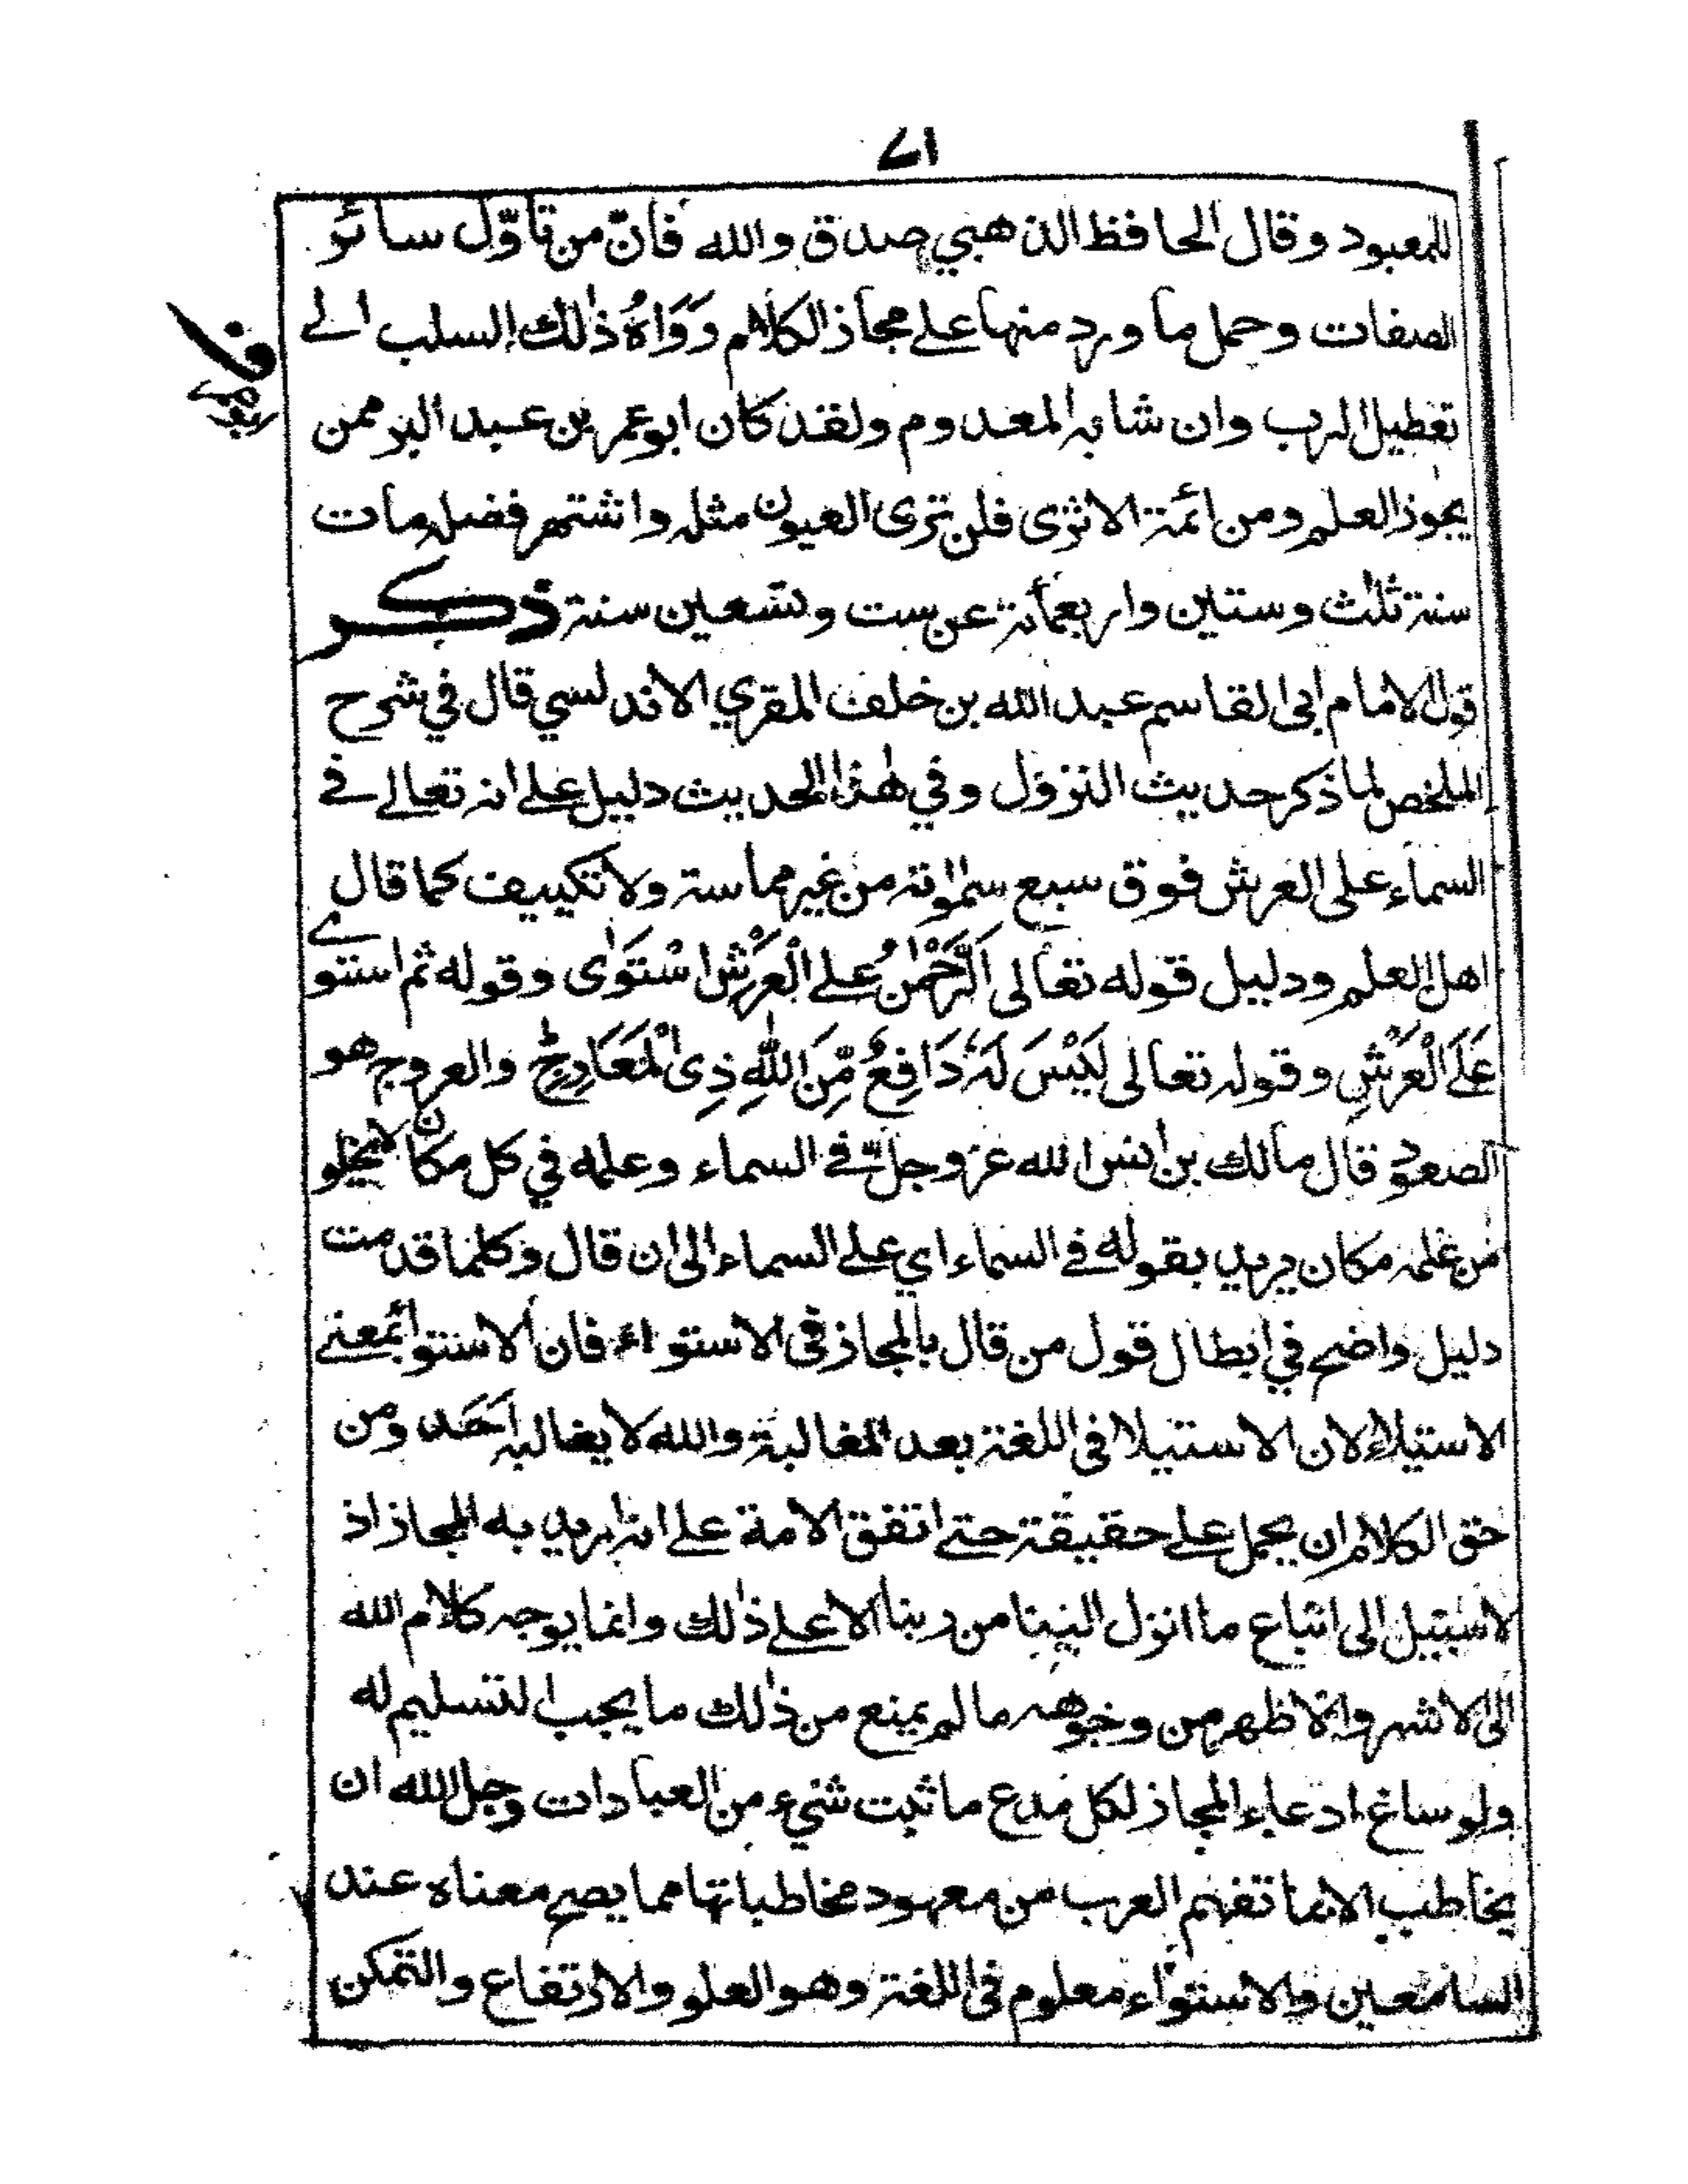 ٧١
للمعبود وقال الحافظ الذهبي صدق والله فانّ من تأوّل سائر
الصفات وحمل ما ورد منها على مجاز الكلام وَوَاهُ ذٰلك السلب الے
تعطيل الرب وان شابه المعدوم ولقد كان ابو عمر بن عبد البر ممن
بحوذ العلم ومن ائمة الاثرى فلن ترى العيون مثله واشتهر فضله مات
سنة ثلٰث وستين واربعمأته عن ست وتسعين سنة ذكر
قول الامام ابى القاسم عبد الله بن خلف المقري الاندلسي قال في شرح
الملخص لما ذكر حديث النزول وفي هٰذا الحديث دليل على انه تعالے فے
السماء على العرش فوق سبع سمٰواته من غير مماسة ولا تكييف كما قال
اهل العلم ودليل قوله تعالى اَلرَّحْمٰنُ على الْعَرْشِ اسْتَوٰى وقوله ثم استوے
عَلَى الْعَرْشِ وقوله تعالى لَيْسَ لَهٗ دَافِعٌ مِّنَ اللّٰهِ ذِى الْمَعَارِجِ والعروج هو
الصعود قال مالك بن انس الله عز وجلّ فے السماء وعلمه في كل مكان لا يخلو
من علمه مكان يريد بقوله فے السماء اي على السماء الى ان قال وكلما قدمت
دليل واضح في ابطال قول من قال بالمجاز فى الاستواء فان الاستوا بمعنے
الاستيلاء لان الاستيلا فى اللغة بعد المغالبة والله لا يغالبه اَحَد ومن
حق الكلام ان يحمل على حقيقة حتى اتفق الامة على انه اريد به المجاز اذ
لا سبيل الى اتباع ما انزل الينا من ربنا الا على ذٰلك وانما يوجه كلام الله
الى الاشهر والاظهر من وجوهه ما لم يمنع من ذٰلك ما يجب التسليم له
ولو ساغ ادعاء المجاز لكل مدع ما ثبت شيء من العبادات وجل الله ان
يخاطب الا بما تفهم العرب من معهود مخاطباتها مما يصح معناه عند
السامعين والاستواء معلوم فى اللغة وهو العلو والارتفاع والتمكن